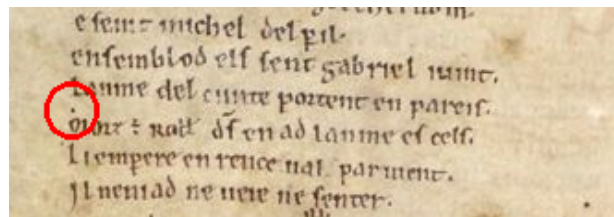 e seint michel del ꝑil.
ensemblod els sent gabriel iuint.
Lanme del cunte portent en pareis.
Morz ÷ Roll̃ d̅s en ad lanme es cels.
Li empere en rence ual paruient.
Il neniad ne ueie ne senter.